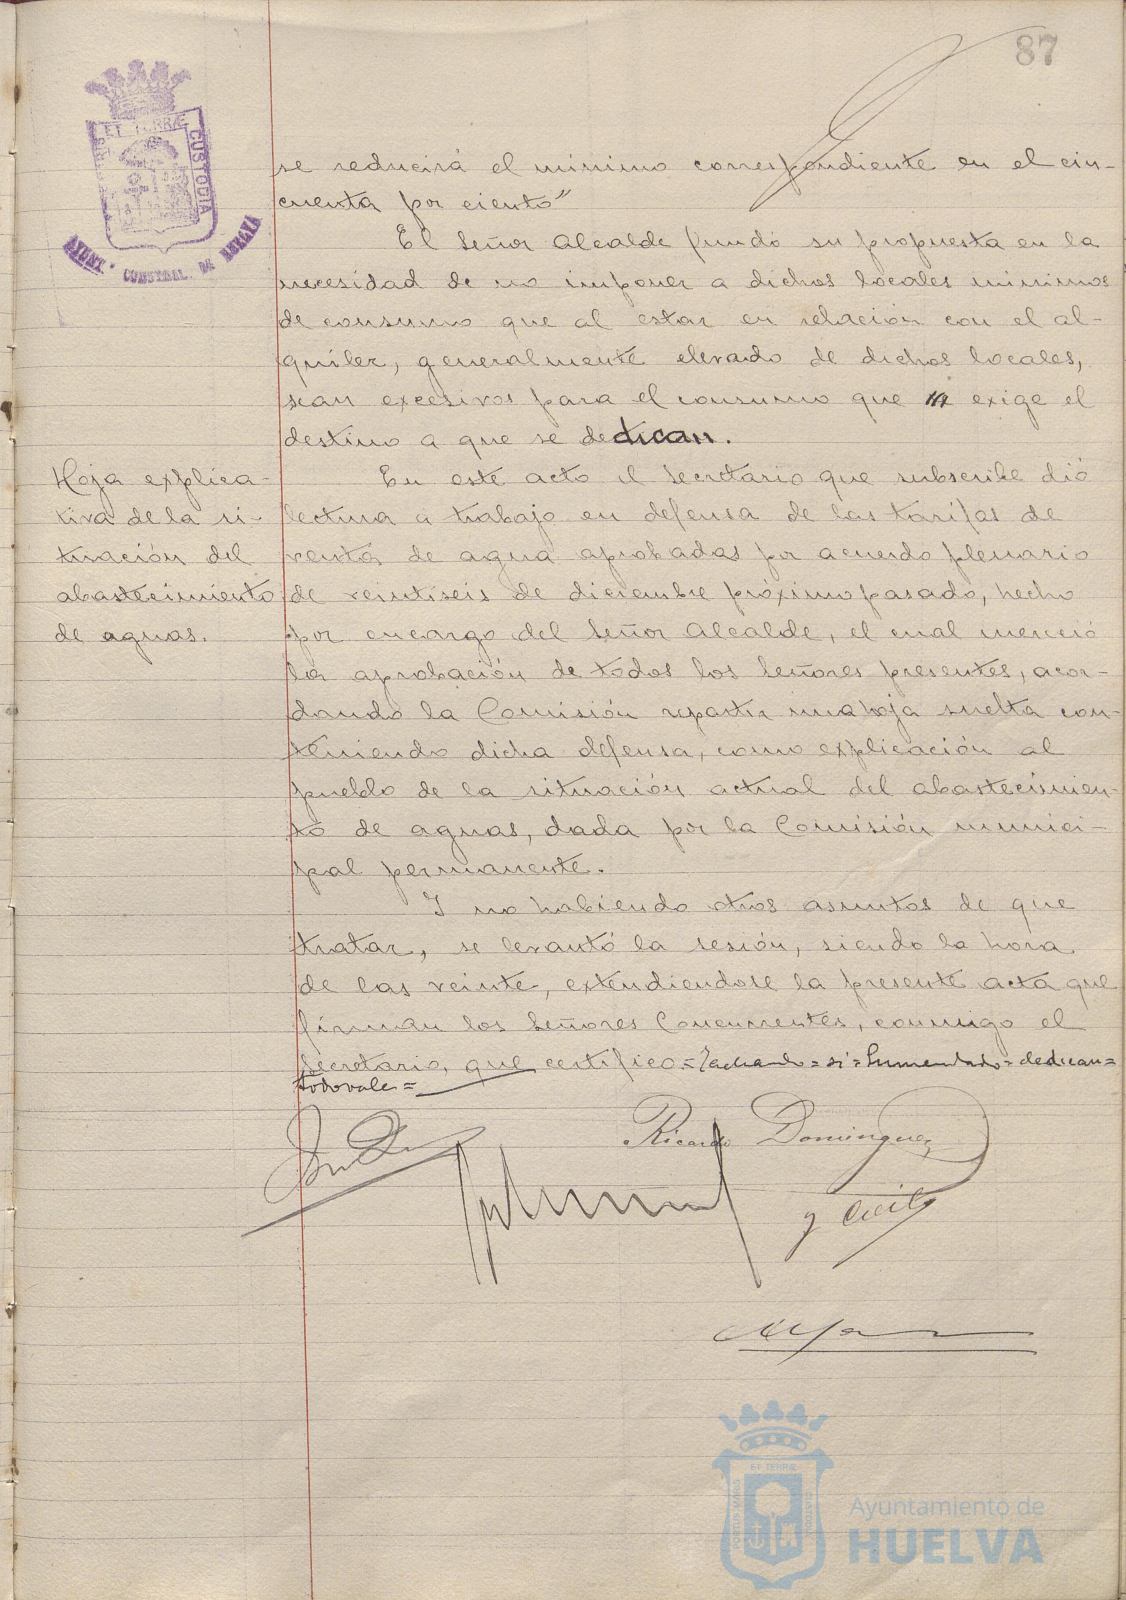 87
PORTUS MARIS ET TERRÆ CUSTODIA
AYUNT. CONSTNAL. DE HUELVA
se reducirá el mínimo correspondiente en el cin-
cuenta por ciento"
El Señor Alcalde fundó su propuesta en la
necesidad de no imponer a dichos locales mínimos
de consumo que al estar en relación con el al-
quiler, generalmente elevado de dichos locales,
sean excesivos para el consumo que exige el
destino a que se dedican.
Hoja explica-
tiva de la si-
tuación del
abastecimiento
de aguas.
En este acto el Secretario que subscribe dió
lectura a trabajo en defensa de las tarifas de
venta de agua aprobadas por acuerdo plenario
de veintiseis de diciembre próximo pasado, hecho
por encargo del Señor Alcalde, el cual mereció
la aprobación de todos los Señores presentes, acor-
dando la Comisión repartir una hoja suelta con-
teniendo dicha defensa, como explicación al
pueblo de la situación actual del abastecimien-
to de aguas, dada por la Comisión munici-
pal permanente.
Y no habiendo otros asuntos de que
tratar, se levantó la sesión, siendo la hora
de las veinte, extendiendose la presente acta que
firman los Señores Concurrentes, conmigo el
Secretario, que certifico.=Tachado=si=Enmendado=dedican=
todo vale=
Ricardo Dominguez
y Cecil
ET TERRÆ
PORTUS MARIS
CUSTODIA
Ayuntamiento de
HUELVA